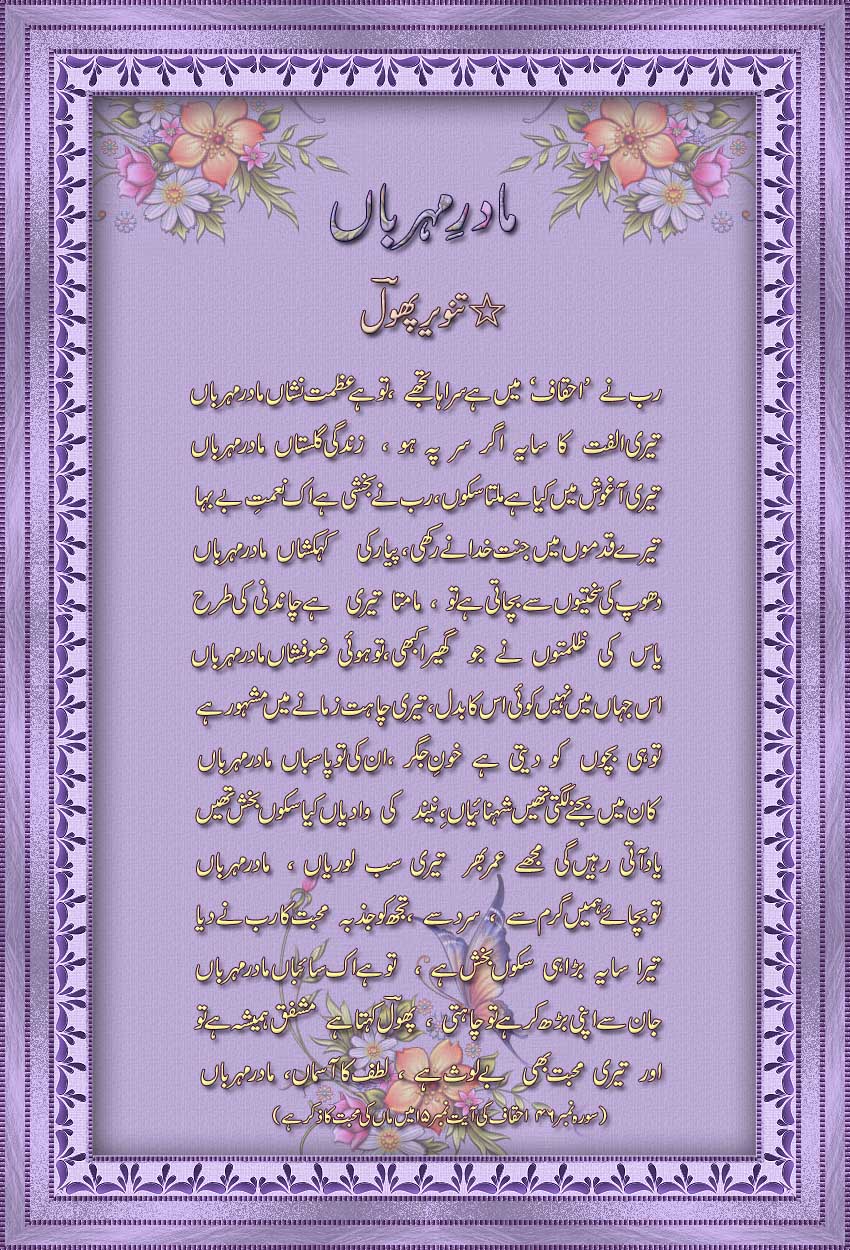 مادرِ مہرباں
☆ تنویر پھولؔ
رب نے ’احقاف‘ میں ہے سراہا تجھے ، تو ہے عظمت نشاں مادر مہرباں
تیری الفت کا سایہ اگر سر پہ ہو ، زندگی گلستاں مادر مہرباں
تیری آغوش میں کیا ہے ملتا سکوں، رب نے بخشی ہے اک نعمتِ بے بہا
تیرے قدموں میں جنت خدا نے رکھی، پیار کی کہکشاں مادر مہرباں
دھوپ کی سختیوں سے بچاتی ہے تو ، مامتا تیری ہے چاندنی کی طرح
یاس کی ظلمتوں نے جو گھیرا کبھی، تو ہوئی ضوفشاں مادر مہرباں
اس جہاں میں نہیں کوئی اس کا بدل، تیری چاہت زمانے میں مشہور ہے
تو ہی بچوں کو دیتی ہے خونِ جگر ، ان کی تو پاسباں مادر مہرباں
کان میں بجنے لگتی تھیں شہنائیاں، نیند کی وادیاں کیا سکوں بخش تھیں
یاد آتی رہیں گی مجھے عمر بھر تیری سب لوریاں ، مادر مہرباں
تو بچائے ہمیں گرم سے ، سرد سے ، تجھ کو جذبہ محبت کا رب نے دیا
تیرا سایہ بڑا ہی سکوں بخش ہے ، تو ہے اک سائباں مادر مہرباں
جان سے اپنی بڑھ کر ہے تو چاہتی ، پھولؔ کہتا ہے مشفق ہمیشہ ہے تو
اور تیری محبت بھی بے لوث ہے ، لطف کا آسماں، مادر مہرباں
(سورہ نمبر ۴۶ احقاف کی آیت نمبر ۱۵ میں ماں کی محبت کا ذکر ہے)